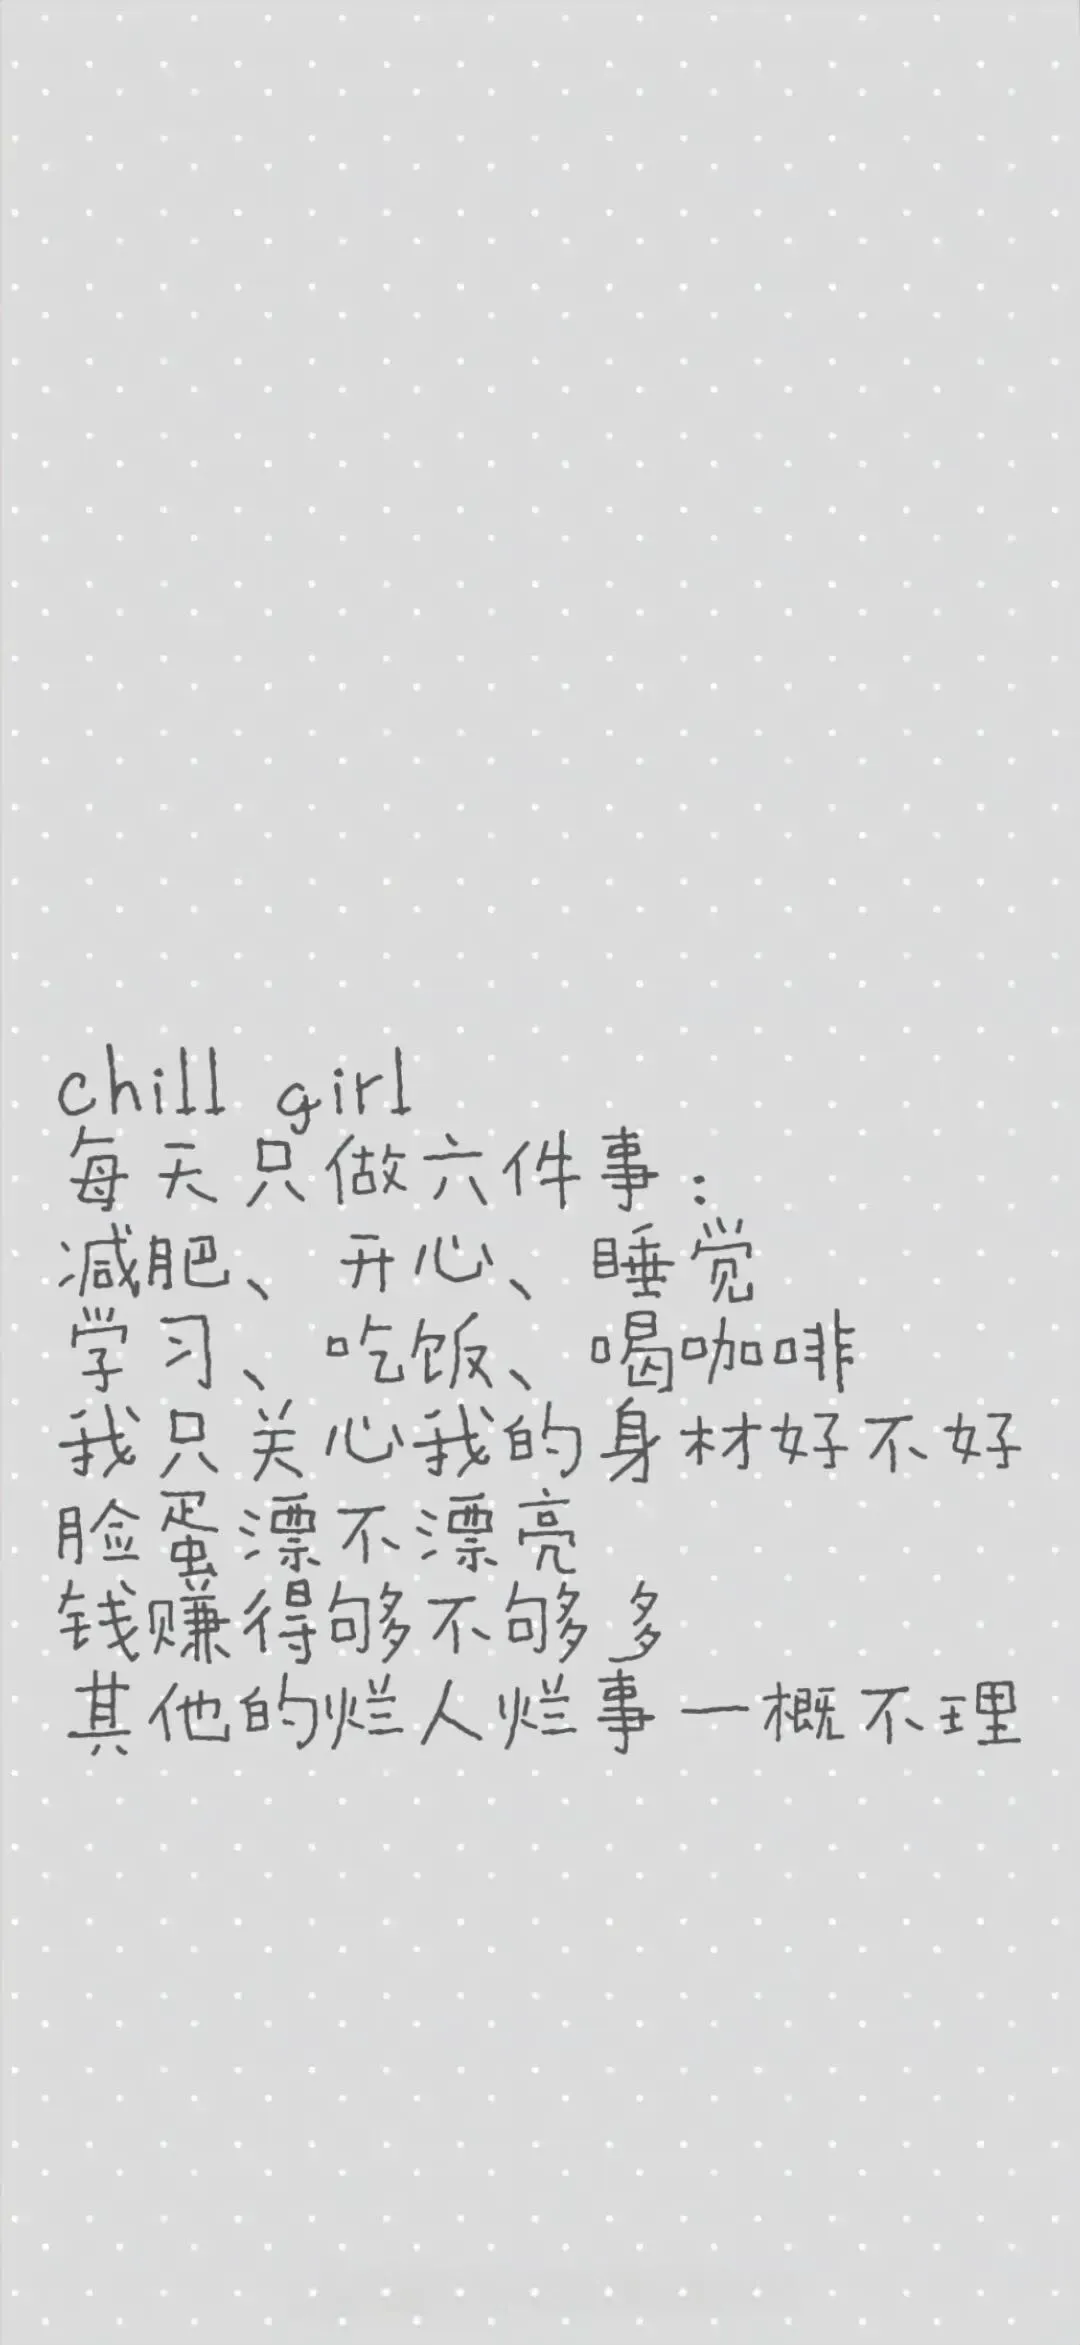 chill girl
每天只做六件事：
减肥、开心、睡觉
学习、吃饭、喝咖啡
我只关心我的身材好不好
脸蛋漂不漂亮
钱赚得够不够多
其他的烂人烂事一概不理